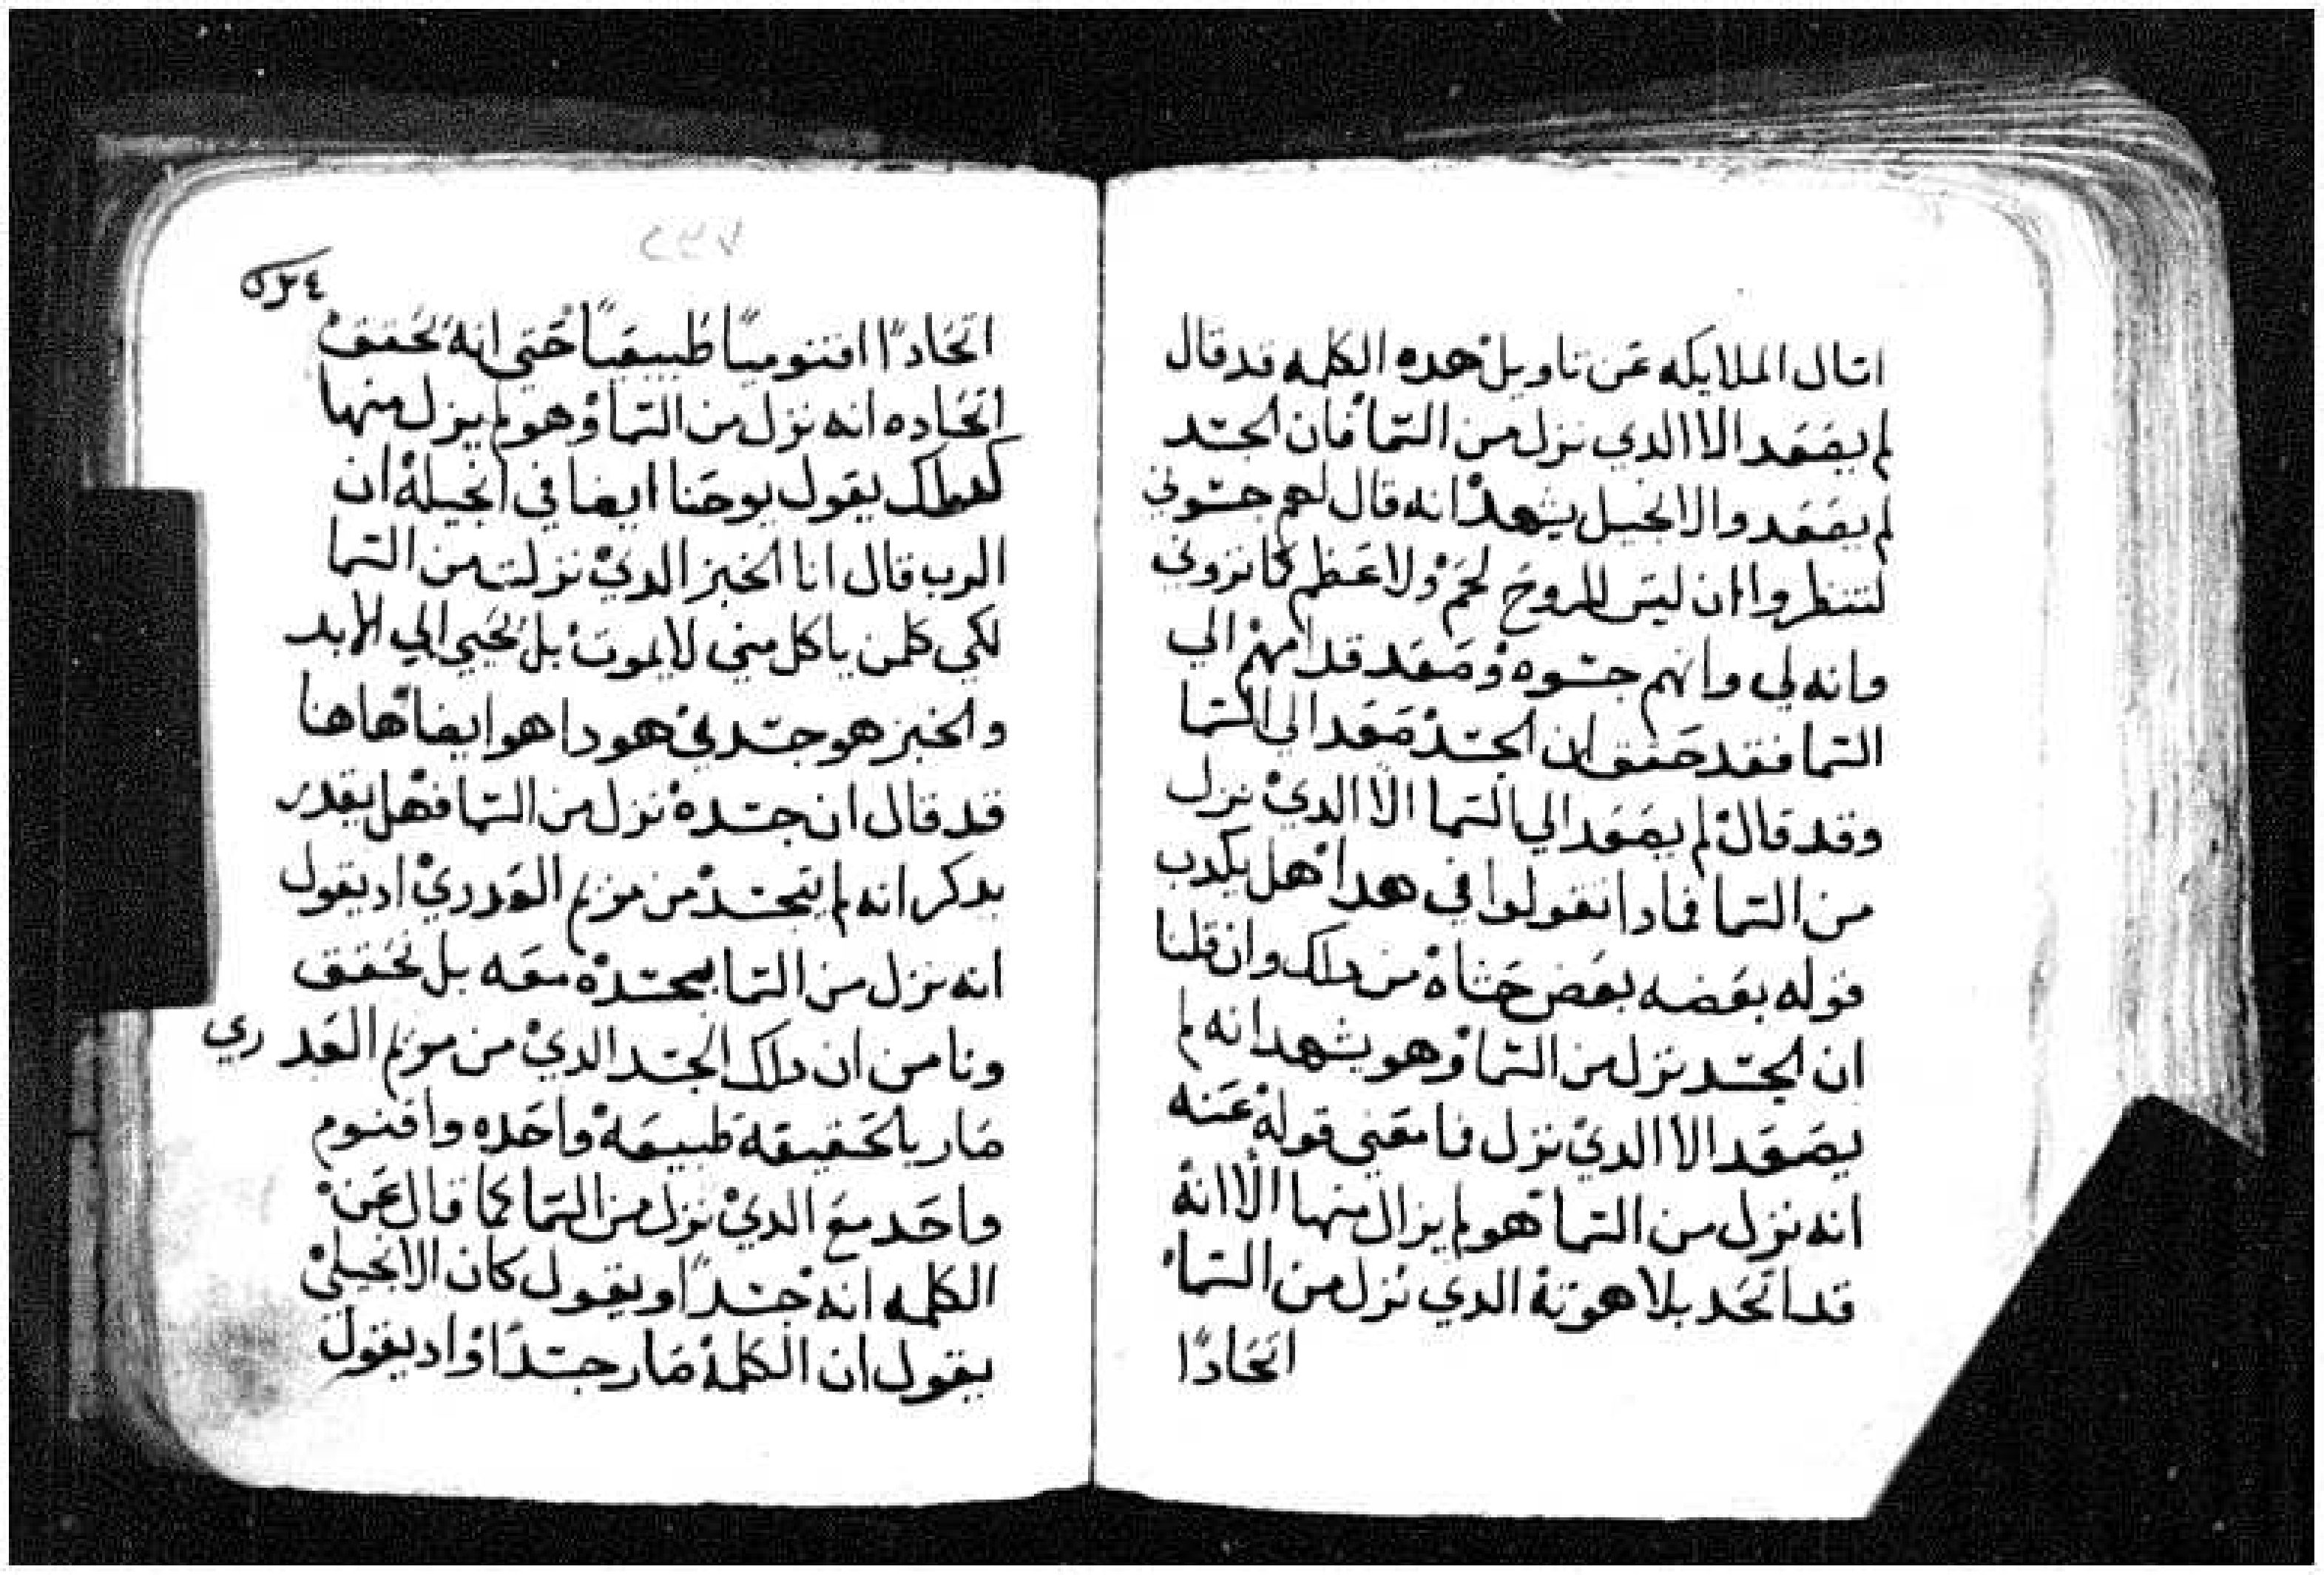 اسال الملايكه عن تاويل هده الكلمه قد قال
لم يصعد الا الدي نزل من السما فان الجسد
لم يصعد والانجيل يشهد انه قال لهم جسوني
لتنظروا ان ليس للروح لحم ولا عظم كما تروني
وانه لي وانهم جسوه وصعد قدامهم الي
السما فقد حقق ان الجسد صعد الي السما
وقد قال لم يصعد الي السما الا الدي نزل
من السما فمادا تقولوا في هدا هل يكدب
قوله بعضه بعض حشاه من دلك وان قلنا
ان الجسد نزل من السما وهو يشهد انه لم
يصعد الا الدي نزل فما معني قوله عنه
انه نزل من السما هو لم يزال منها الا انه
قد اتحد بلاهوته الدي نزل من السما
اتحادًا
٢٣٧
اتحادًا اقنوميًا طبيعيًا حتي انه تحقق
اتحاده انه نزل من السما وهو لم يزل منها
كدلك يقول يوحنا ايضا في انجيله ان
الرب قال انا الخبز الدي نزلت من السما
لكي كلمن ياكل مني لا يموت بل يحيي الي الابد
والخبز هو جسدي هودا هو ايضا هاهنا
قد قال ان جسده نزل من السما فهل يقدر
يدكر انه لم يتجسد من مريم العدري اد يقول
انه نزل من السما بجسده معه بل نحقق
ونامن ان دلك الجسد الدي من مريم العدري
صار بالحقيقه طبيعه واحده واقنوم
واحد مع الدي نزل من السما كما قال عن
الكلمه انه جسدًا ويقول كان الانجيلي
يقول ان الكلمة صار جسدًا واد يقول